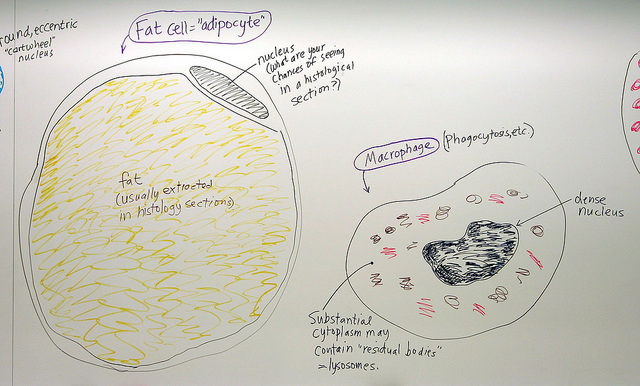 round, eccentric
"cartwheel"
nucleus
Fat cell = "adipocyte"
nucleus
(what are your
chances of seeing
in a histological
section?)
fat
(usually extracted
in histology sections)
Macrophage (Phagocytoses, etc.)
dense
nucleus
Substantial
cytoplasm may
contain "residual bodies"
= lysosomes.